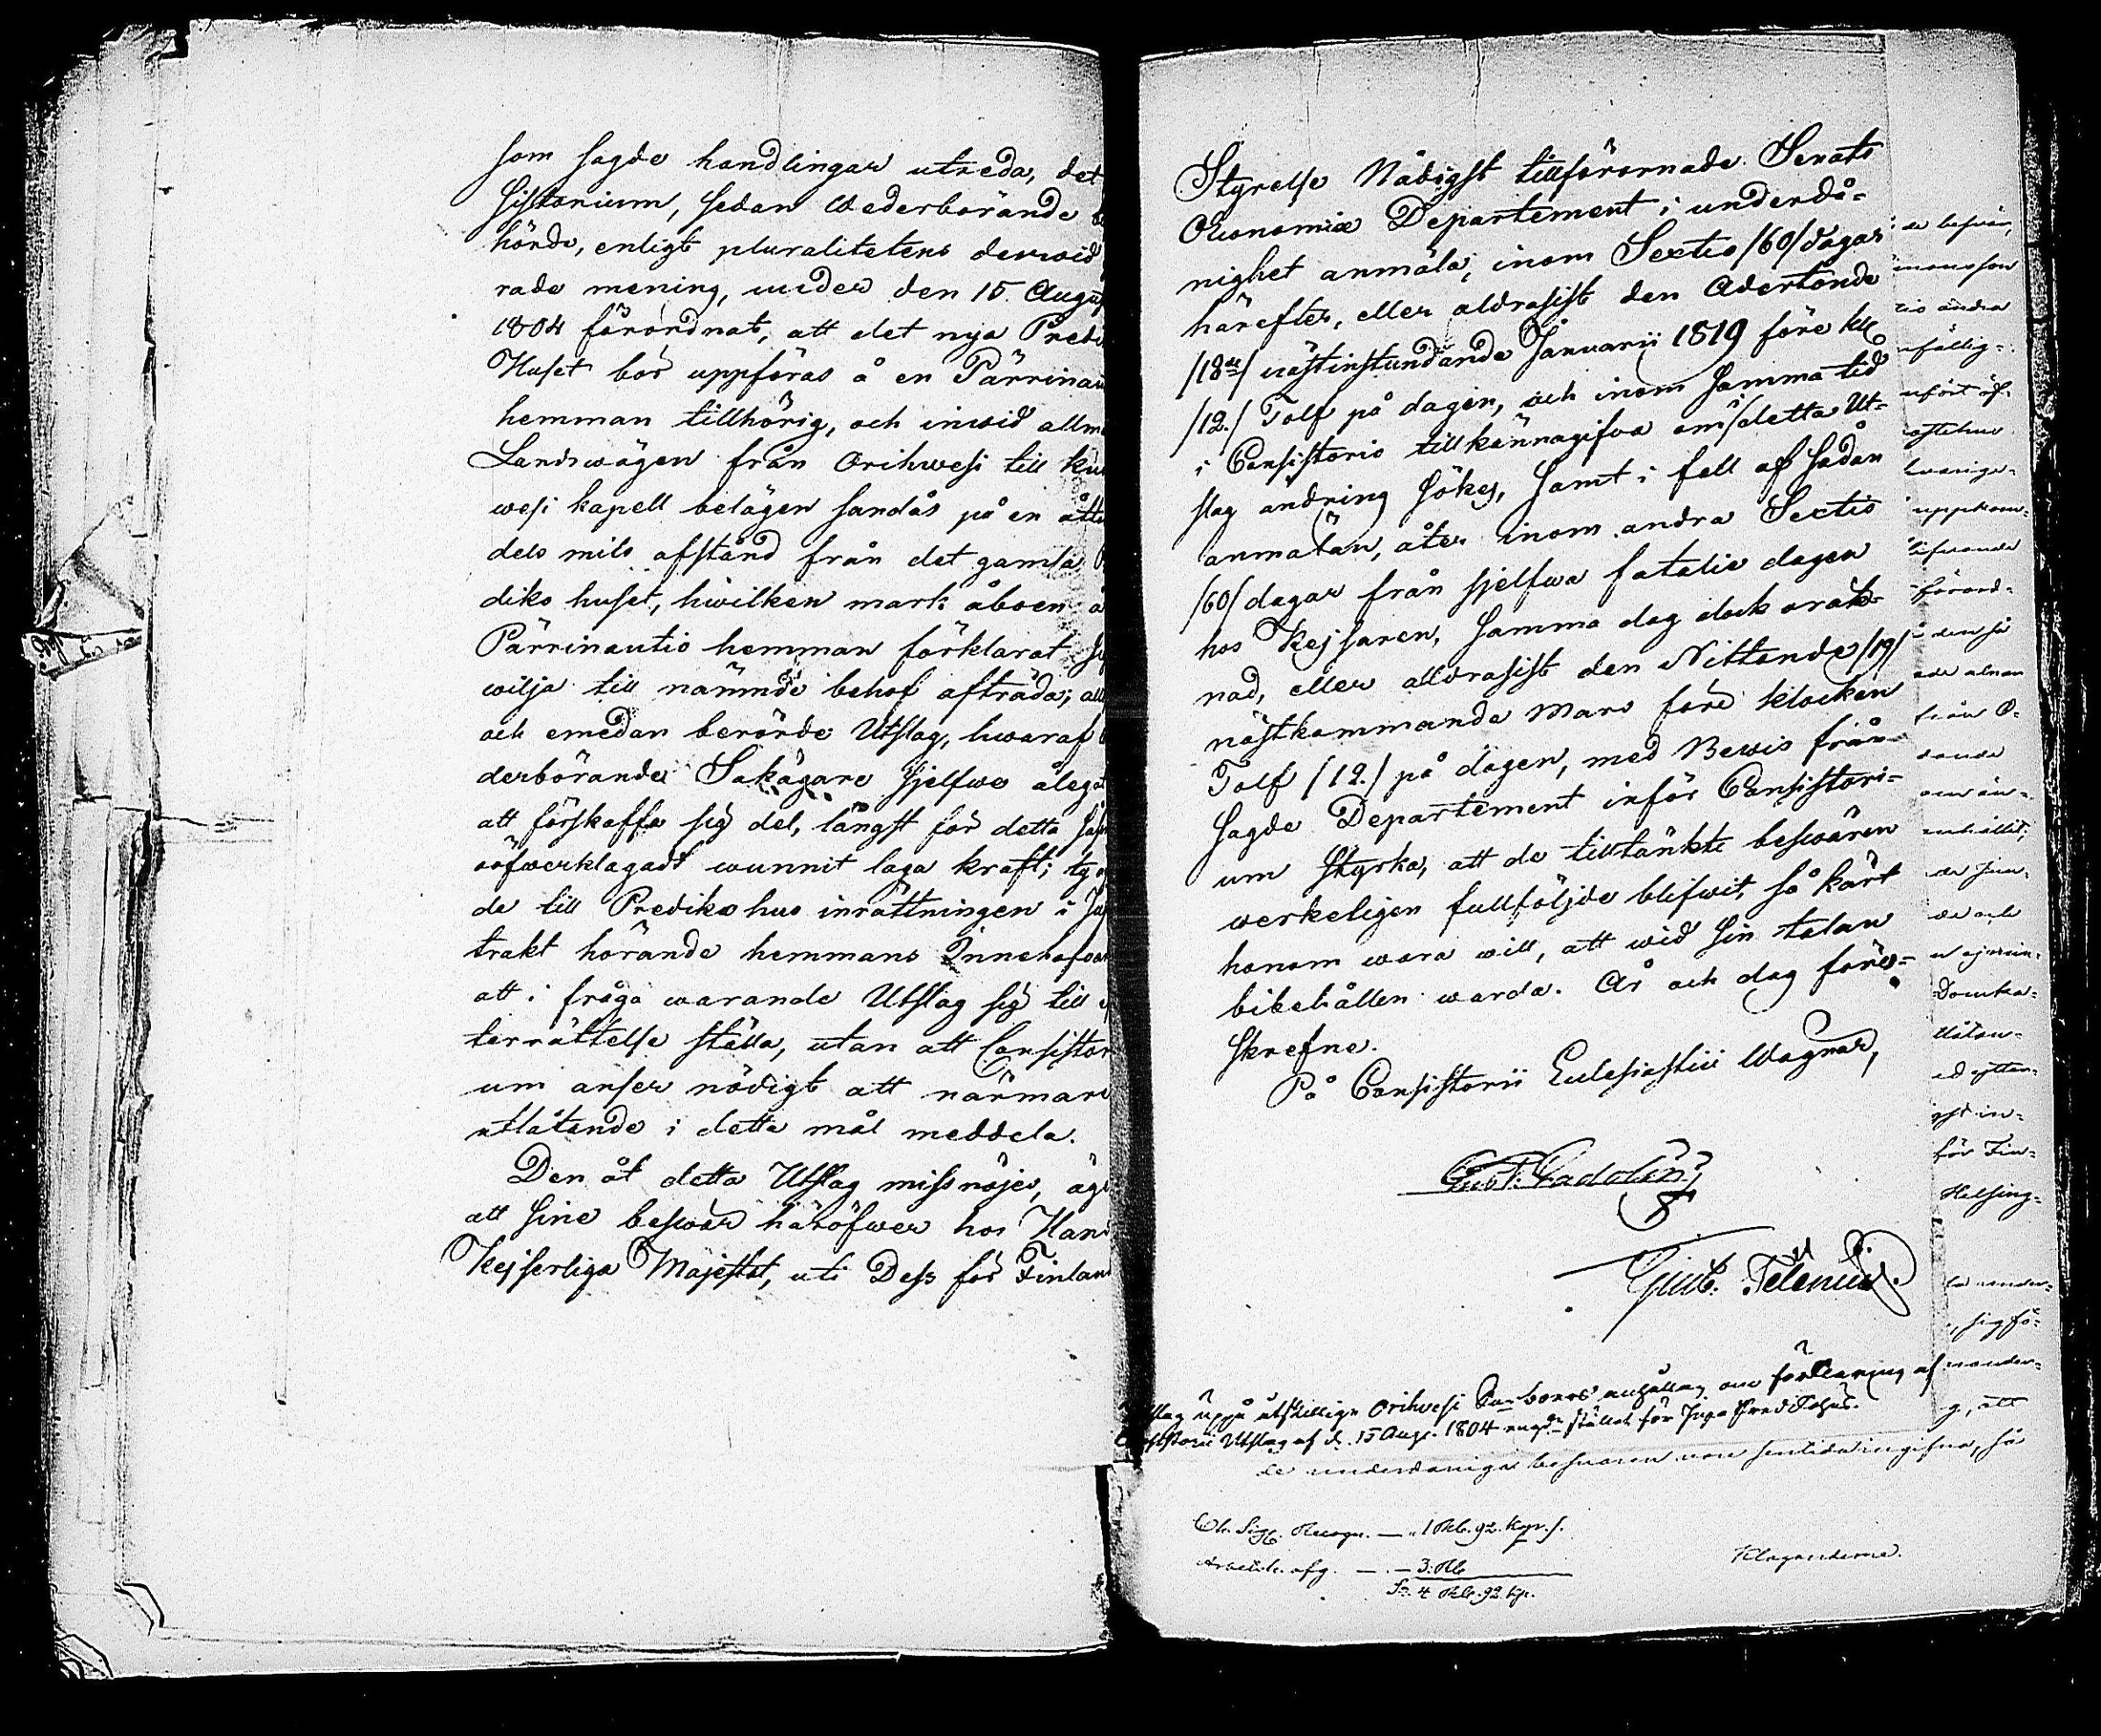 som sagde handlingar utreda, det
sistorium, sedan wederbörande
hörde, enligt pluralitetens derwid
rade mening, under den 15 Augus
1804 förordnat, att det nya Predi
Huset bör uppföras å en Pärrinau
hemman tillhörig, och inwid allm
Landswägen från Orihwesi till
wesi kapell belägen sandås på en åtto
dels mils afstånd från det gamla
diko huset, hwilken mark åboen å
Pärrinautio hemman förklarat
wilja till nämnde behof afträda; all
och emedan berörde Utslag, hwaraf
derbörande Sakägare sjelfwe åleg
att förskaffa sig del, längst för detta
oöfwerklagadt wunnit laga kraft; ty
de till Predikohus inrättningen i
trakt hörande hemmans Innehafwa
att i fråga warande Utslag sig till
terrättelse ställa, utan att Consistor
um anser nödigt att närmare
utlåtande i detta mål meddela.
Den åt detta Utslag missnöjes, äge
att sine beswär häröfwer hos Hans
Kejserliga Majestät, uti Dess för Finland
Styrelse Nådigst tillförornade Senats
Oeconomiæ Departement i underdå-
nighet anmäla, inom Sextio /60/ dagar
härefter, eller aldrasist den Adertonde
/18de/ nästinstundande Januarii 1819 före kl
/12./ Tolf på dagen, och inom samma tid
i Consistorio tillkännagifwa om i detta Ut-
slag ändring sökes, samt i fall af sådan
anmälan, åter inom andra Sextio
/60/ dagar från sjelfwa fatalie dagen
hos Kejsaren, samma dag dock oräk-
nad, eller alldrasist den Nittonde /19/
nästkommande Mars före klockan
Tolf /12./ på dagen, med Bewis från
sagde Departement inför Consistori-
um styrka, att de tilltänkte beswären
werkeligen fullföljde blifwit, så kärt
honom wara will, att wid sin talan
bibehållen warda. År och dag föru-
skrefne.
På Consistorii Eclesiastici Wagnar,
Gust. Gadolin.
Gust. Telenius.
slag uppå åtskillige Orihvesi Sn boers anhållan om förklaring af
sistorii Utslag af d. 15 Aug. 1804 angde stället för Predikohus.
de underdåniga besvären ingifna, så
Ch. Sig. Recogn. — „1 Rbl. 92. kop. s.
afg. — . — 3: Rb
Sa. 4 Rbl. 92. kop.
Klaganderne.
ändra
uppkom-
förord-
från
Domka-
för Fin-
Helsing-
g, att